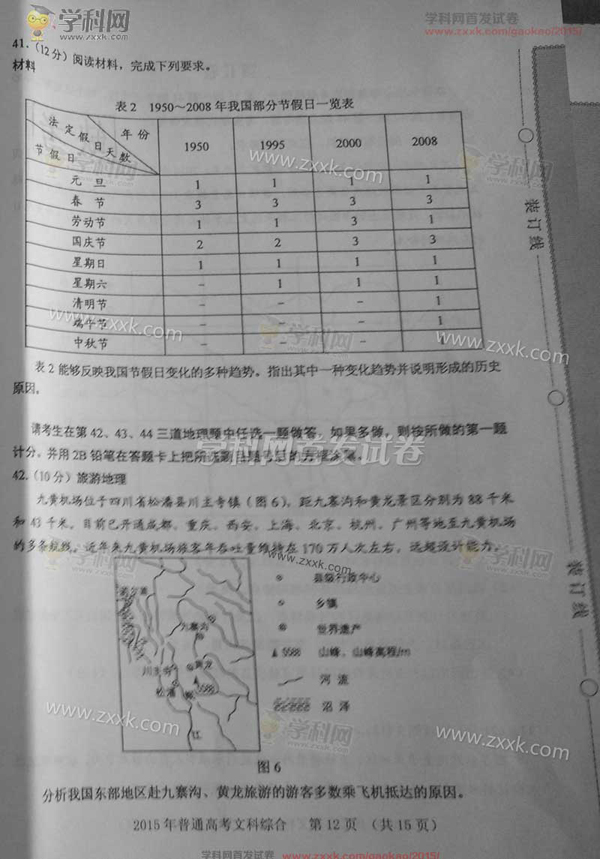 学科网
www.zxxk.com
学科网首发试卷
www.zxxk.com/gaokao/2015/
41.(12分)阅读材料,完成下列要求。
材料
表2 1950~2008年我国部分节假日一览表
法定假日天数 年份 节假日 1950 1995 2000 2008
元旦 1 1 1 1
春节 3 3 3 3
劳动节 1 1 3 1
国庆节 2 2 3 3
星期日 1 1 1 1
星期六 - 1 1 1
清明节 - - - 1
端午节 - - - 1
中秋节 - - - 1
表2能够反映我国节假日变化的多种趋势。指出其中一种变化趋势并说明形成的历史
原因。
请考生在第42、43、44三道地理题中任选一题做答。如果多做,则按所做的第一题
计分。并用2B铅笔在答题卡上把所选
学科网首发试卷
42.(10分)旅游地理
九黄机场位于四川省松潘县川主寺镇(图6),距九寨沟和黄龙景区分别为88千米
和43千米。目前已开通成都、重庆、西安、上海、北京、杭州、广州等地至九黄机场
的多条航线。近年来九黄机场旅客年吞吐量维持在170万人次左右,远超设计能力。
若尔盖
九寨沟
川主寺
黄龙
5588
松潘
江
县级行政中心
乡镇
世界遗产
5588 山峰、山峰高程/m
河流
沼泽
图6
分析我国东部地区赴九寨沟、黄龙旅游的游客多数乘飞机抵达的原因。
2015年普通高考文科综合 第12页 (共15页)
学科网首发试卷 www.zxxk.com/gaokao/2015/
装订线
装订线
www.zxxk.com
学科网
www.zxxk.com
学科网
www.zxxk.com
www.zxxk.com
学科网
www.zxxk.com
学科网
www.zxxk.com